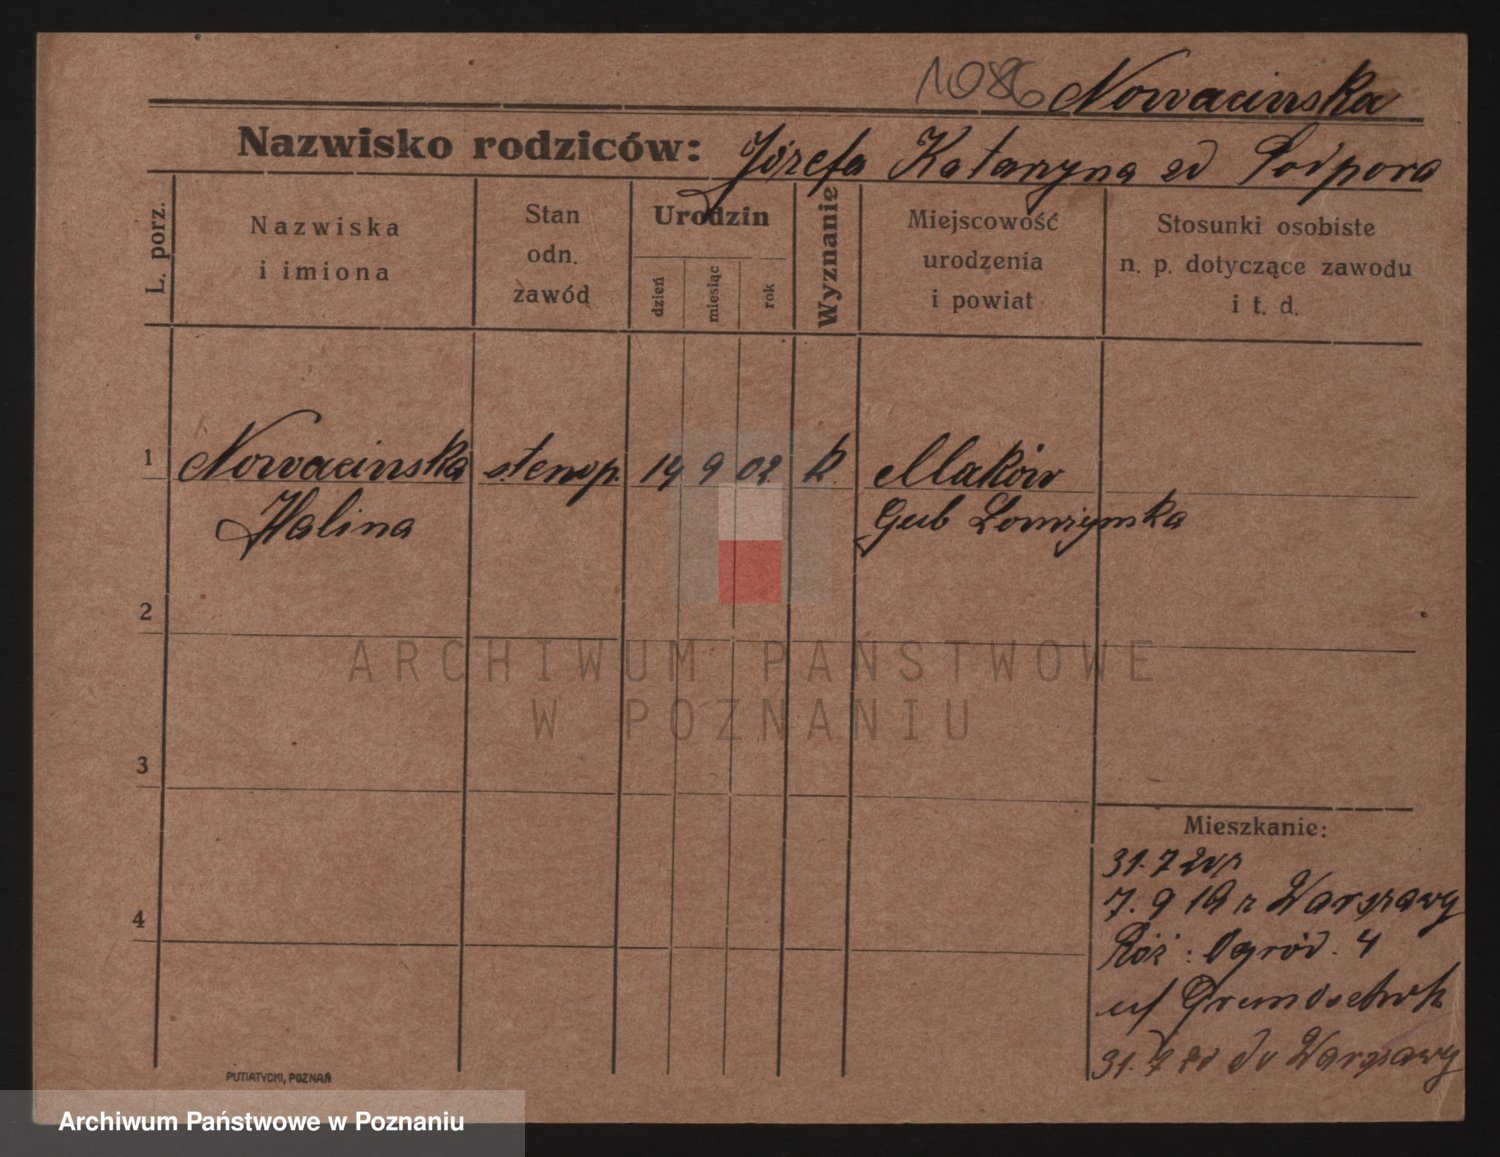 1086 Nowacinska
Nazwisko rodziców: Józefa Katarzyna zd Podpora
L. porz.
Nazwiska
i imiona
Stan
odn.
zawód
Urodzin
dzień
miesiąc
rok
Wyznanie
Miejscowość
urodzenia
i powiat
Stosunki osobiste
n. p. dotyczące zawodu
i t. d.
1 Nowacinska stenop. 14 9 02. k. Maków
Halina Gub Lomzynska
2
ARCHIWUM PAŃSTWOWE
W POZNANIU
3
Mieszkanie:
31. 7
7. 9 19 z Warszawy
4
Róż: Ogród. 4
u/
31. 7 20 do Warszawy
PUTIATYCKI, POZNAŃ
Archiwum Państwowe w Poznaniu